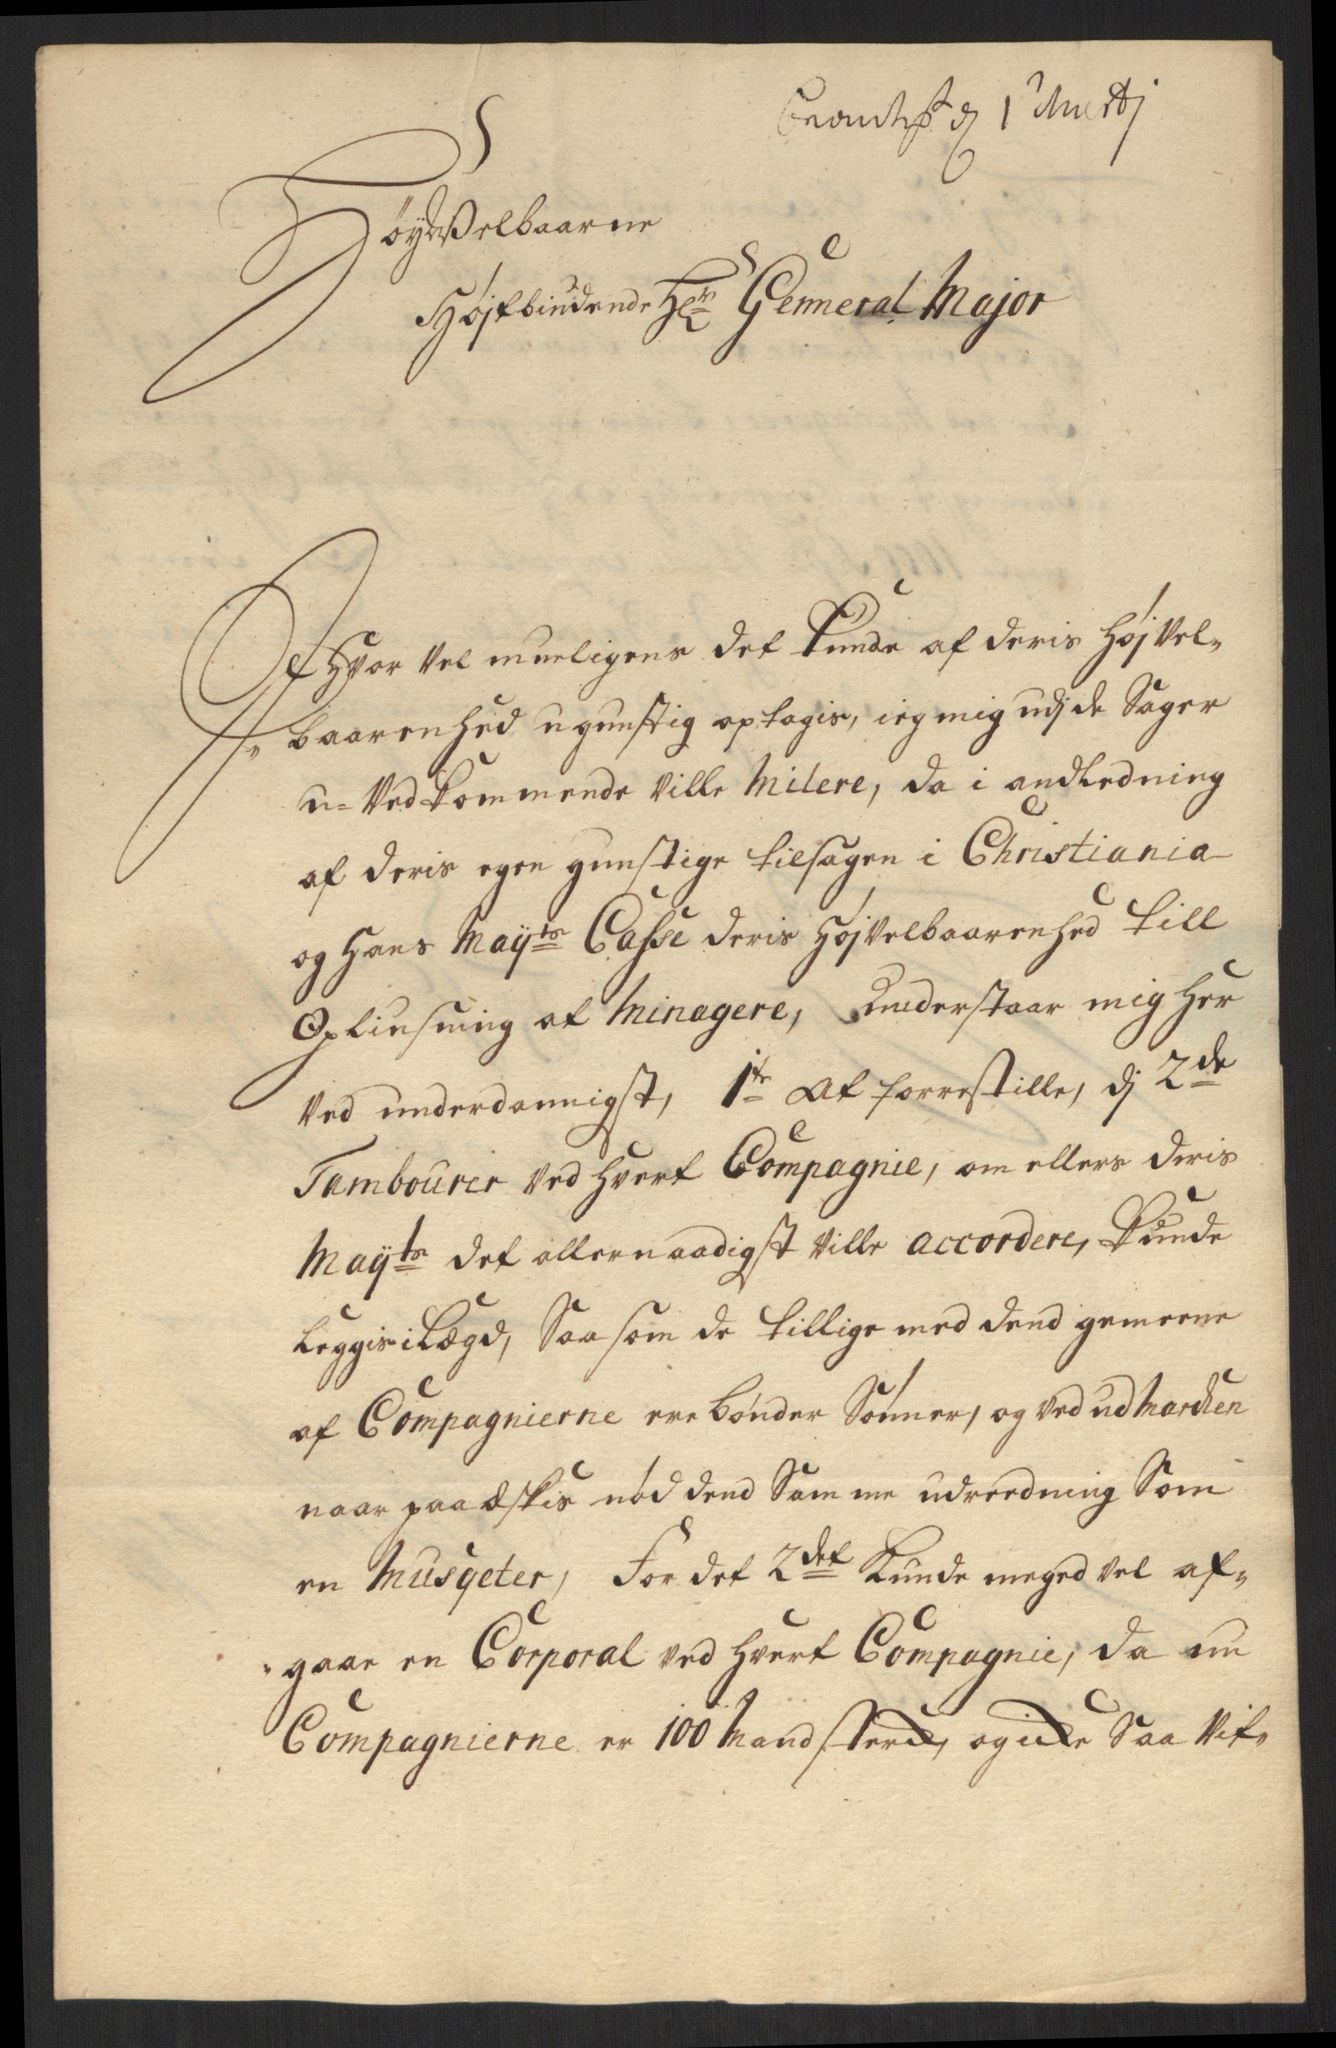 d 1 Martj
Höyædelbaarne
Højstbiudende Hr Genneral Major
Hvor vel mueligens det kunde af deris Højvel-
baarenhed ugunstig optagis, ieg mig udj de Sager
u-vedkommende ville Milere, da i andledning
af deris egen gunstige tilsagen i Christiania
og Hans Maÿts Casse deris Højvelbaarenhed till
Opliusning at Minagere, understaar mig her
ved underdannigst, 1te at forrestille, dj 2de
Tambourer ved hvert Compagnie, om ellers deris
Maÿts det allernaadigst ville accordere, kunde
leggis i Lægd, Saa som de tillige med dend gemeene
af Compagnierne ere bønder Sønner, og ved udMarchen
naar paaæskis nød dend Samme udreedning Som
en Musqeter, For det 2det kunde meged vel af-
gaae en Corporal ved hvert Compagnie, da nu
Compagnierne er 100 Mand Sterck, og icke Saa vit-